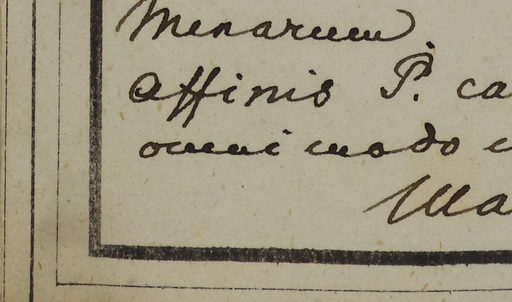 Menarum
Affinis P. ca
omni modo
Ma